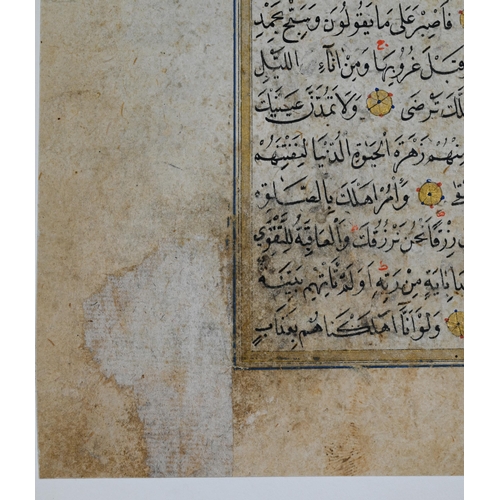 فَاصْبِرْ عَلَىٰ مَا يَقُولُونَ وَسَبِّحْ بِحَمْدِ
وَقَبْلَ غُرُوبِهَا وَمِنْ اٰنَاۤئِ الَّيْلِ
لَعَلَّكَ تَرْضَى وَلَا تَمُدَّنَّ عَيْنَيْكَ
مِنْهُمْ زَهْرَةَ الْحَيٰوةِ الدُّنْيَا لِنَفْتِنَهُمْ
وَأْمُرْ اَهْلَكَ بِالصَّلٰوةِ
رِزْقًا نَحْنُ نَرْزُقُكَ وَالْعَاقِبَةُ لِلتَّقْوٰى
بِاٰيَةٍ مِنْ رَبِّهِ اَوَلَمْ تَأْتِهِمْ بَيِّنَةُ
وَلَوْ اَنَّا اَهْلَكْنَاهُمْ بِعَذَابٍ